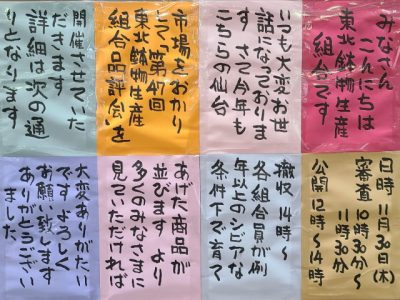 みなさん
こんにちは
東北鉢物生産
組合です
いつも大変お世
話になっておりま
す さて今年も
こちらの仙台
市場をおかり
して、「第47回
東北鉢物生産
組合品評会」を
開催させていた
だきます
詳細は次の通
りとなります
日時 11月30日(木)
審査 10時30分〜
11時30分
公開 12時〜14時
撤収 14時〜
各組合員が例
年以上のシビアな
条件下で育て
あげた商品が
並びます より
多くのみなさまに
見ていただければ
大変ありがたい
です よろしく
お願い致します
ありがとうござい
ました